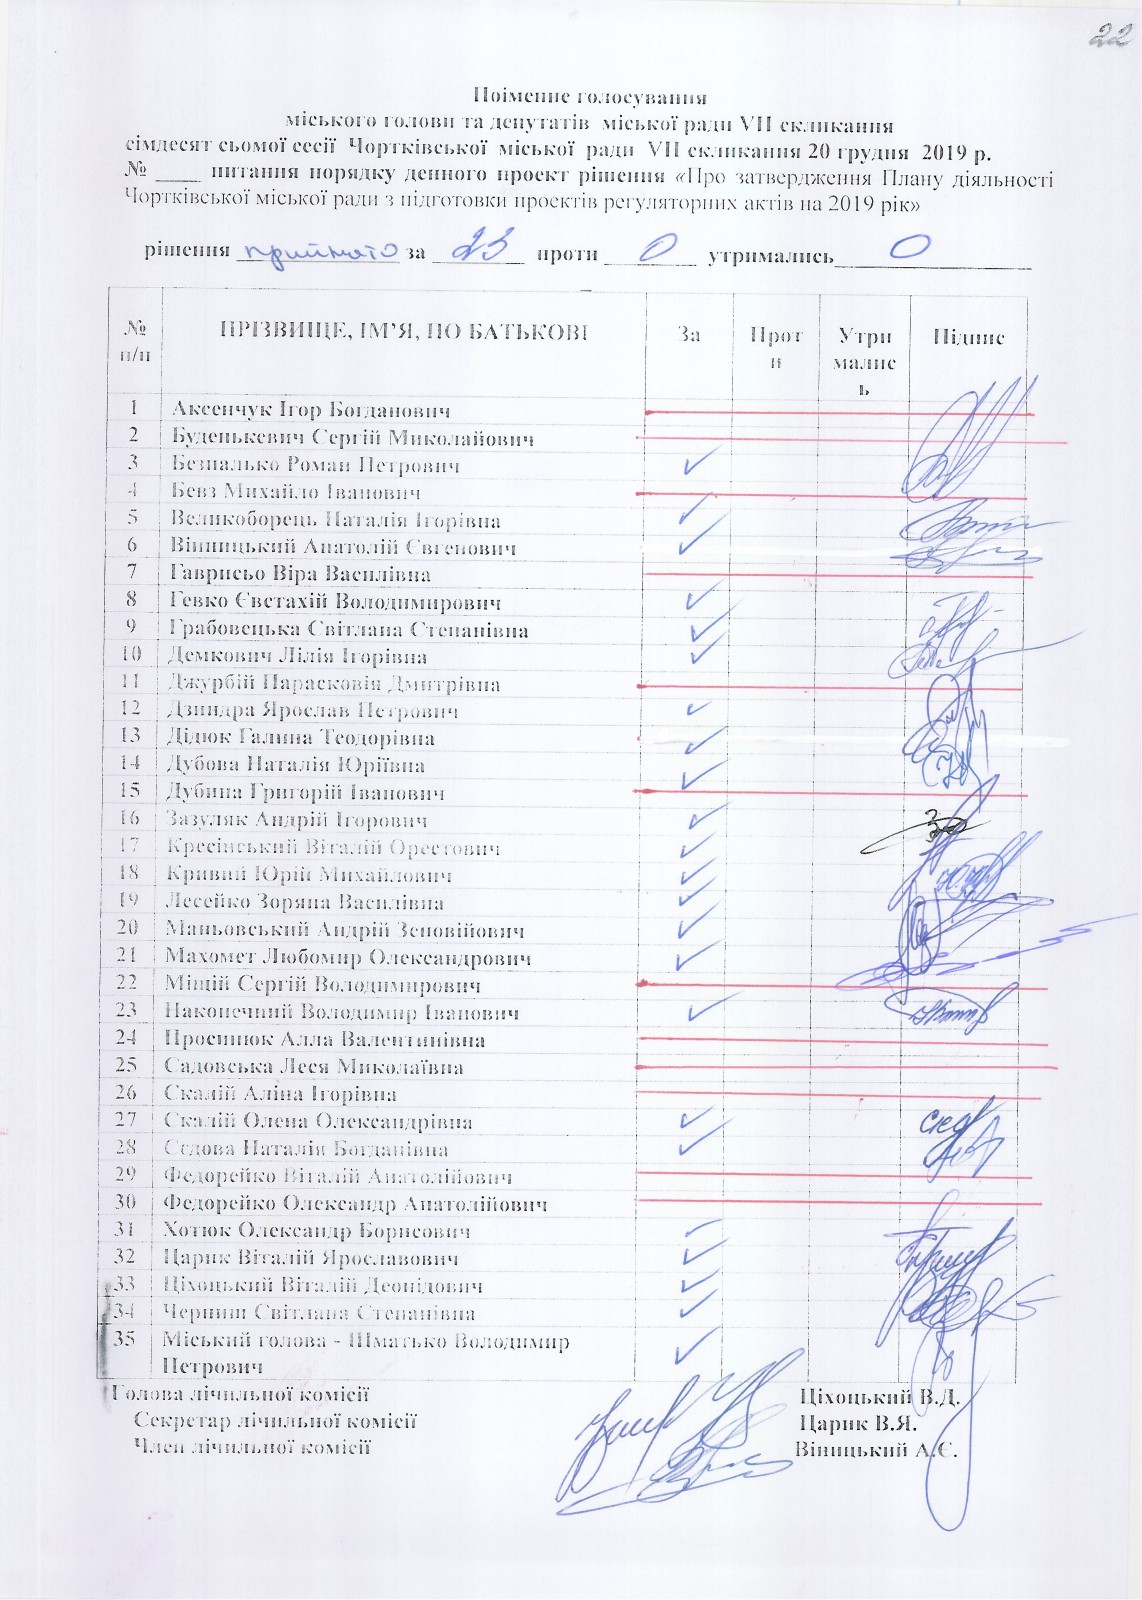 22
Поіменне голосування
міського голови та депутатів міської ради VII скликання
сімдесят сьомої сесії Чортківської міської ради VII скликання 20 грудня 2019 р.
№ ____ питання порядку денного проект рішення «Про затвердження Плану діяльності
Чортківської міської ради з підготовки проектів регуляторних актів на 2019 рік»
рішення прийнято за 23 проти 0 утримались 0
№ п/п ПРІЗВИЩЕ, ІМ’Я, ПО БАТЬКОВІ За Проти Утрималиcь Підпис
1 Аксенчук Ігор Богданович
2 Буденькевич Сергій Миколайович
3 Безпалько Роман Петрович
4 Бевз Михайло Іванович
5 Великоборець Наталія Ігорівна
6 Вінницький Анатолій Євгенович
7 Гаврисьо Віра Василівна
8 Гевко Євстахій Володимирович
9 Грабовецька Світлана Степанівна
10 Демкович Лілія Ігорівна
11 Джурбій Парасковія Дмитрівна
12 Дзиндра Ярослав Петрович
13 Дідюк Галина Теодорівна
14 Дубова Наталія Юріївна
15 Дубина Григорій Іванович
16 Зазуляк Андрій Ігорович
17 Кресінський Віталій Орестович
18 Кривий Юрій Михайлович
19 Лесейко Зоряна Василівна
20 Маньовський Андрій Зеновійович
21 Махомет Любомир Олександрович
22 Міщій Сергій Володимирович
23 Наконечний Володимир Іванович
24 Просинюк Алла Валентинівна
25 Садовська Леся Миколаївна
26 Скалій Аліна Ігорівна
27 Скалій Олена Олександрівна
28 Сєдова Наталія Богданівна
29 Федорейко Віталій Анатолійович
30 Федорейко Олександр Анатолійович
31 Хотюк Олександр Борисович
32 Царик Віталій Ярославович
33 Ціхоцький Віталій Леонідович
34 Черниш Світлана Степанівна
35 Міський голова - Шматько Володимир
Петрович
Голова лічильної комісії Ціхоцький В.Д.
Секретар лічильної комісії Царик В.Я.
Член лічильної комісії Вінницький А.Є.